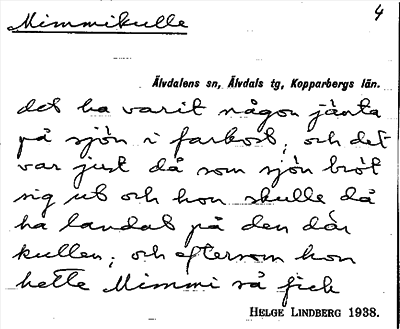 Mimmikulle
4
Älvdalens sn, Älvdals tg, Kopparbergs län.
det ha varit någon jänta
på sjön i farkost, och det
var just då som sjön bröt
sig ut och hon skulle då
ha landat på den där
kullen, och eftersom hon
hette Mimmi så fick
HELGE LINDBERG 1938.